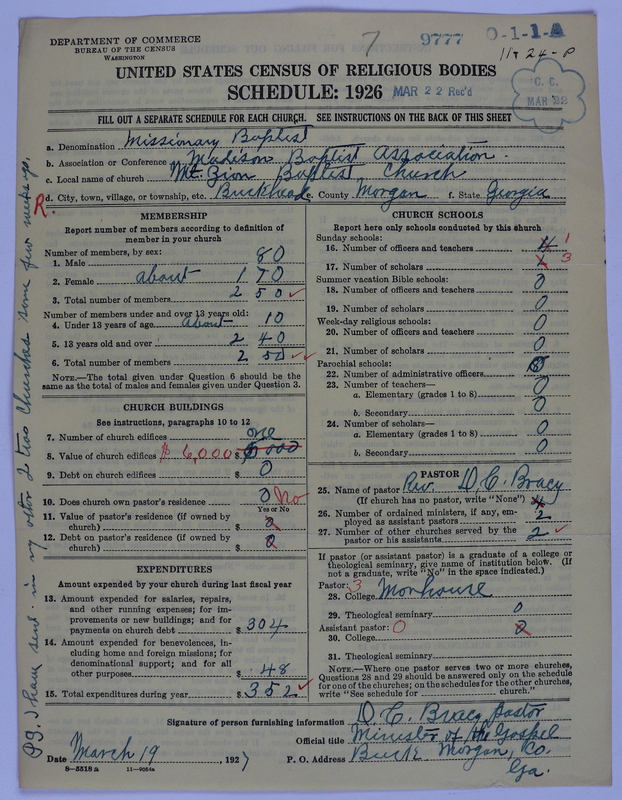 DEPARTMENT OF COMMERCE
BUREAU OF THE CENSUS
WASHINGTON
7 9777 0-1-1-A
11-24-P
UNITED STATES CENSUS OF RELIGIOUS BODIES
SCHEDULE: 1926 MAR 22 Rec'd
C. C. MAR 22
FILL OUT A SEPARATE SCHEDULE FOR EACH CHURCH. SEE INSTRUCTIONS ON THE BACK OF THIS SHEET
a. Denomination Missionary Baptist
b. Association or Conference Madison Baptist Association.
c. Local name of church Mt. Zion Baptist Church
R. d. City, town, village, or township, etc. Buckhead e. County Morgan f. State Georgia
MEMBERSHIP
Report number of members according to definition of
member in your church
Number of members, by sex:
1. Male 80
2. Female about 170
3. Total number of members 250 ✓
Number of members under and over 13 years old:
4. Under 13 years of age about 10
5. 13 years old and over 240
6. Total number of members 250 ✓ ✓
NOTE.—The total given under Question 6 should be the
same as the total of males and females given under Question 3.
CHURCH BUILDINGS
See instructions, paragraphs 10 to 12
7. Number of church edifices one
8. Value of church edifices $ 6,000 $ 6000
9. Debt on church edifices $ 0
10. Does church own pastor's residence 0 No
Yes or No
11. Value of pastor's residence (if owned by
church) $ 0
12. Debt on pastor's residence (if owned by
church) $ 0
EXPENDITURES
Amount expended by your church during last fiscal year
13. Amount expended for salaries, repairs,
and other running expenses; for im-
provements or new buildings; and for
payments on church debt $ 304
14. Amount expended for benevolences, in-
cluding home and foreign missions; for
denominational support; and for all
other purposes $ 48
15. Total expenditures during year $ 352 ✓
CHURCH SCHOOLS
Report here only schools conducted by this church
Sunday schools:
16. Number of officers and teachers 4 1
17. Number of scholars 3
Summer vacation Bible schools:
18. Number of officers and teachers 0
19. Number of scholars 0
Week-day religious schools:
20. Number of officers and teachers 0
21. Number of scholars 0
Parochial schools:
22. Number of administrative officers 0
23. Number of teachers—
a. Elementary (grades 1 to 8) 0
b. Secondary 0
24. Number of scholars—
a. Elementary (grades 1 to 8) 0
b. Secondary 0
PASTOR
25. Name of pastor Rev. D. C. Bracy
(If church has no pastor, write "None") 4
26. Number of ordained ministers, if any, em-
ployed as assistant pastors 2
27. Number of other churches served by the
pastor or his assistants 2 ✓
If pastor (or assistant pastor) is a graduate of a college or
theological seminary, give name of institution below. (If
not a graduate, write "No" in the space indicated.)
Pastor: 3
28. College Morhouse
29. Theological seminary 0
Assistant pastor: 0
30. College
31. Theological seminary
NOTE.—Where one pastor serves two or more churches,
Questions 28 and 29 should be answered only on the schedule
for one of the churches; on the schedules for the other churches,
write "See schedule for church."
Signature of person furnishing information D. C. Bracy, Pastor
Official title Minister of the Gospel
Date March 19, 1927 P. O. Address Buck Morgan, Co.
Ga.
8—5518 a 11—9084a
PS. I have sent in my other 2 two Churches some few weeks ago.